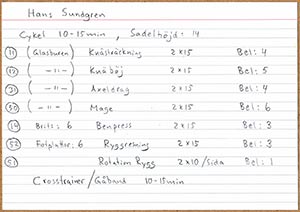 Hans Sundgren
Cykel 10-15min, Sadelhöjd: 14
11 (Glasburen) Knästräckning 2x15 Bel: 4
12 ( -11- ) Knäböj 2x15 Bel: 5
21 ( -11- ) Axeldrag 2x15 Bel: 4
30 ( -11- ) Mage 2x15 Bel: 6
14 Brits: 6 Benpress 2x15 Bel: 3
52 Fotplatta: 6 Ryggresning 2x15 Bel: 3
51 Rotation Rygg 2x10/sida Bel: 1
Crosstrainer/Gåband 10-15min